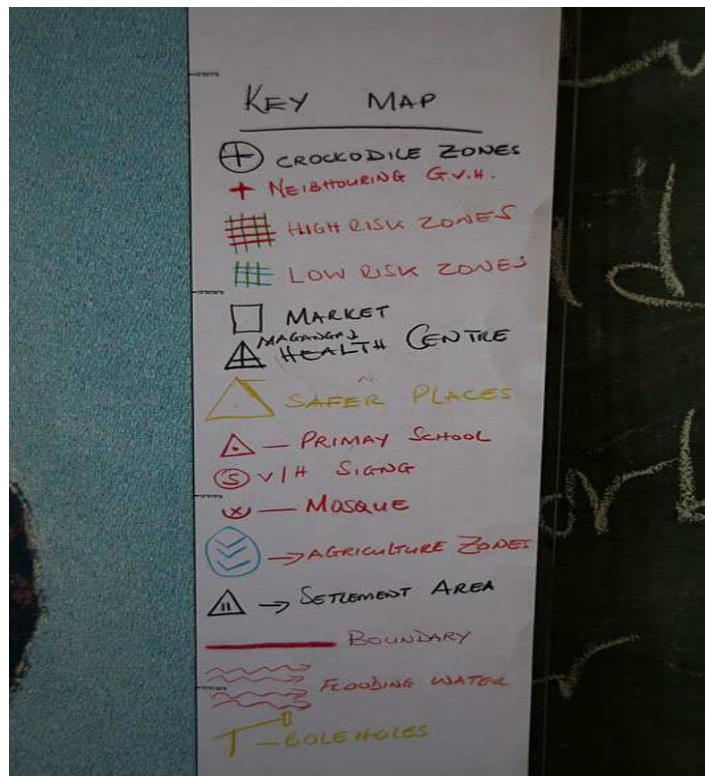 KEY MAP
CROCKODILE ZONES
NEIBHOURING G.V.H.
HIGH RISK ZONES
LOW RISK ZONES
MARKET
MAGANGA
HEALTH CENTRE
SAFER PLACES
— PRIMAY SCHOOL
S V/H SIGNG
— MOSQUE
→ AGRICULTURE ZONES
→ SETLEMENT AREA
BOUNDARY
FLOODING WATER
— BOLEHOLES